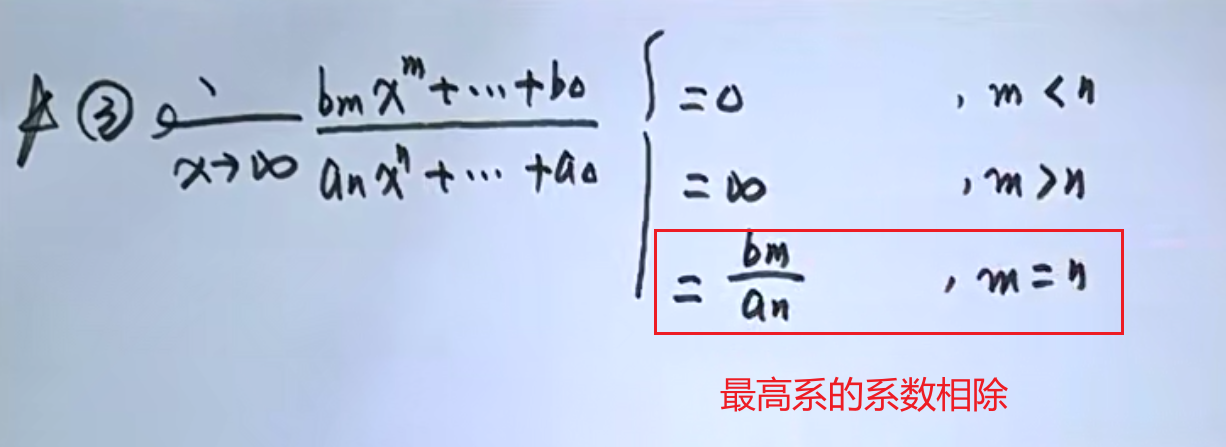 ★ ③ lim x→∞ (bm x^m + ... + b0) / (an x^n + ... + a0) { = 0 , m < n
= ∞ , m > n
= bm / an , m = n
最高系的系数相除